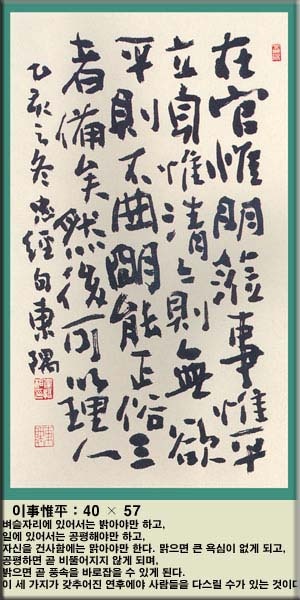 在官惟明蒞事惟平
立身惟清々則無欲
平則不曲明能正俗三
者備矣然後可以理人
乙亥之冬忠經句東隅
이事惟平 : 40 × 57
벼슬자리에 있어서는 밝아야만 하고,
일에 있어서는 공평해야만 하고,
자신을 건사함에는 맑아야만 한다. 맑으면 큰 욕심이 없게 되고,
공평하면 곧 비뚤어지지 않게 되며,
밝으면 곧 풍속을 바로잡을 수 있게 된다.
이 세 가지가 갖추어진 연후에야 사람들을 다스릴 수가 있는 것이다